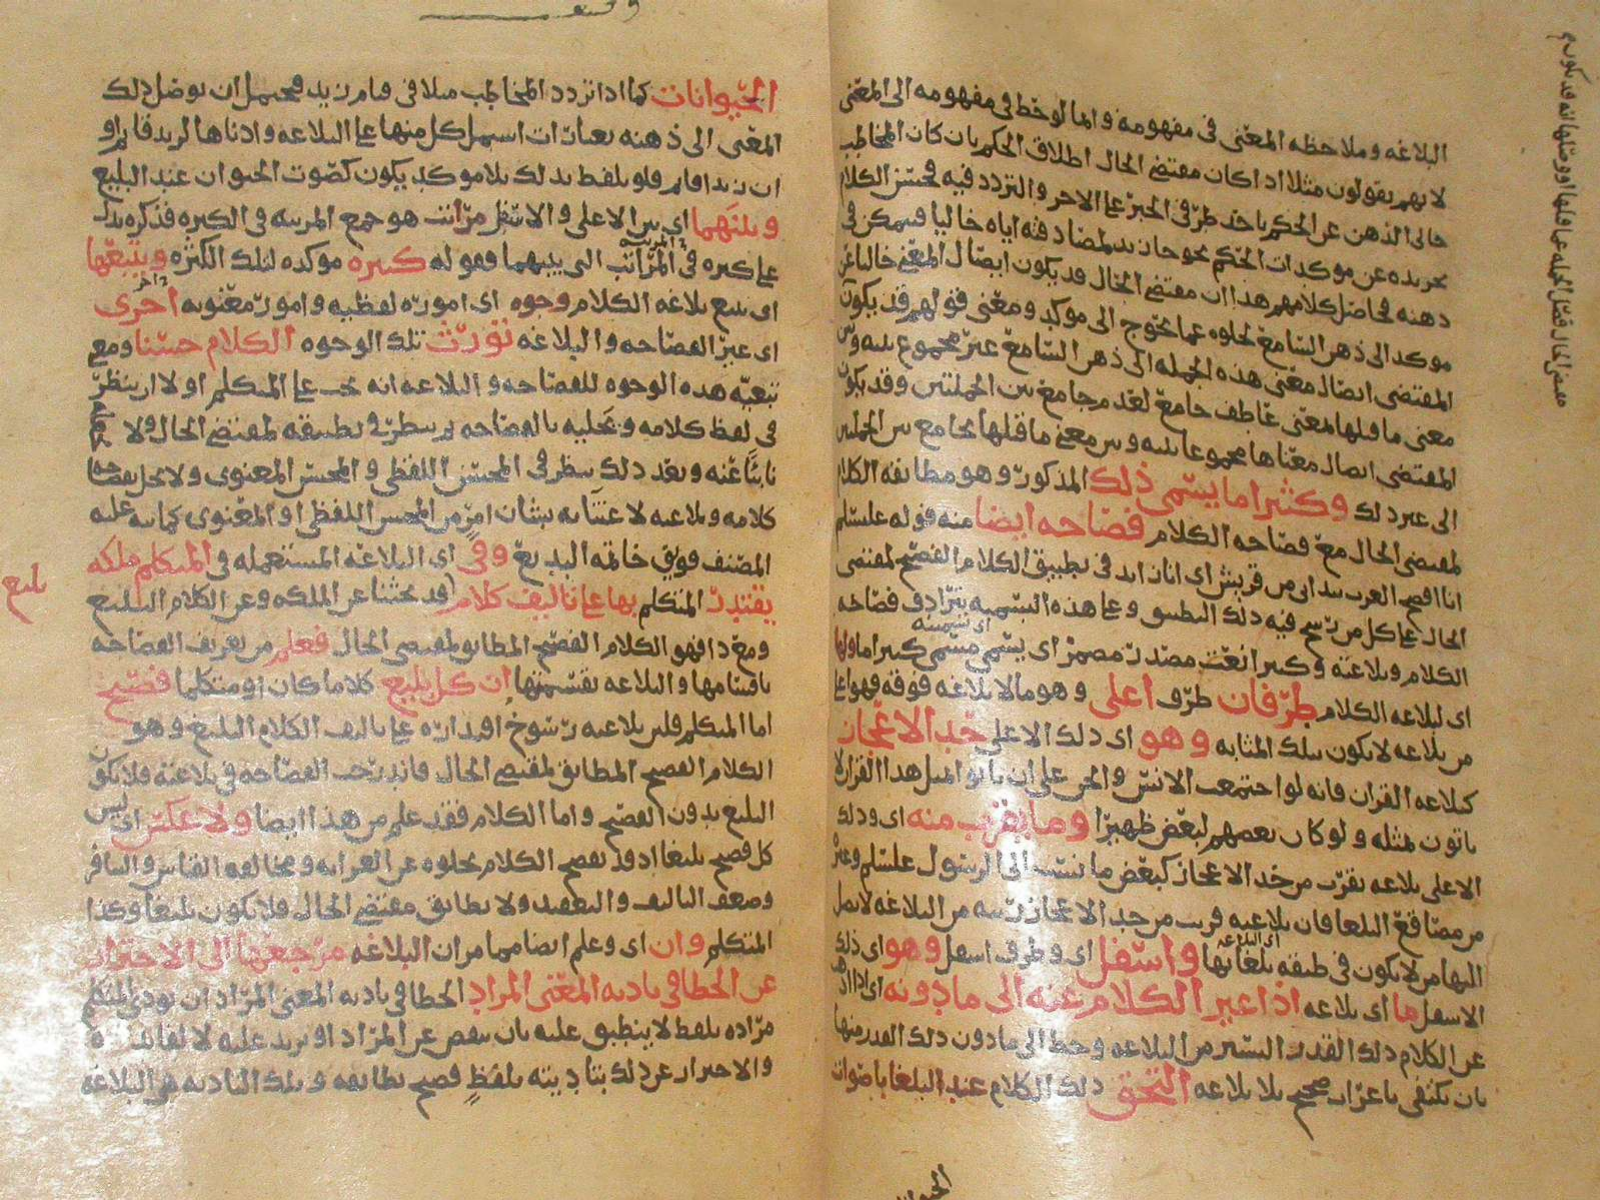 البلاغه وملاحظه المعنى فى مفهومه وامالوحظ فى مفهومه الى المعنى
لانهم يقولون مثلا اذا كان مقتضى الحال اطلاق الحكم بان كان المخاطب
خالى الذهن عن الحكم باحد طرفى الخبر على الاخر والتردد فيه فيحسن الكلام
دهنه فحاصل كلامهم هذا ان مقتضى الحال قد يكون ايصال المعنى خاليا عن
موكد الى ذهن السامع لخلوه عما يحوج الى موكد ومعنى قولهم قد يكون
المقتضى ايصال معنى هذه الجمله الى ذهن السامع غير مجموع بينه وبين
معنى ما قبلها لمعنى عاطف جامع لعدم جامع بين الجملتين وقد يكون
المقتضى ايصال معناها مجموعا بينه وبين معنى ما قبلها بجامع بين الجملتين
الى غير ذلك وكثيرا ما يسمى ذلك المذكور وهو مطابقه الكلام
لمقتضى الحال مع فصاحه الكلام فصاحه ايضا منه قوله علىسلم
انا افصح العرب بيد انى من قريش اى انا زايد فى تطبيق الكلام الفصيح لمقتضى
الحال على كل من رسخ فيه ذلك التطبيق وعلى هذه التسميه يترادف فصاحه
الكلام وبلاغته وكثيرا نعت مصدر مضمر اى يسمى مسمى كثيرا ما ولها
اى لبلاغه الكلام طرفان طرف اعلى وهو مالا بلاغه فوقه فهو اعلى
من بلاغه لا يكون بتلك المثابه وهو اى ذلك الاعلى حد الاعجاز
كبلاغه القران فانه لو اجتمعت الانس والجن على ان ياتوا بمثل هذا القران لا
ياتون بمثله ولو كان بعضهم لبعض ظهيرا وما يقرب منه اى وذلك
الاعلى بلاغه يقرب من حد الاعجاز كبعض ما ينسب الى الرسول علىسلم وغيره
من مصاقع البلغا فان بلاغته قريب من حد الاعجاز رتبه من البلاغه لا يصل
اليها من لا يكون فى طبقه بلغائها واسفل اى وطرف اسفل وهو اى ذلك
الاسفل ها اى بلاغه اذا غير الكلام عنه الى ما دونه اى اذا
عن الكلام ذلك القدر اليسير من البلاغه وحط الى ما دون ذلك القدر منها
بان يكتفى باعراب صحيح بلا بلاغه التحق ذلك الكلام عند البلغا باصوات
الحيوانات كما اذا تردد المخاطب مثلا فى قيام زيد فيحتمل ان توصل ذلك
المعنى الى ذهنه بعبارات اشتمل كل منها على البلاغه وادناها لزيد قايم او
ان زيدا قايم فلو تلفظ بذلك بلا موكد يكون كصوت الحيوان عند البليغ
وبينهما اى بين الاعلى والاسفل مراتب هو جمع المرتبه فى الكثره فذكره يدل
على كثره فى المراتب التى بينهما فقوله كثيره موكده لتلك الكثره ويتبعها
اى يتبع بلاغه الكلام وجوه اى امور لفظيه وامور معنويه اخرى
اى غير الفصاحه والبلاغه تورث تلك الوجوه الكلام حسنا ومعنى
تبعيه هذه الوجوه للفصاحه والبلاغه انه يجب على المتكلم اولا ان ينظر
فى لفظ كلامه وتحليه بالفصاحه ثم ينظر فى تطبيقه لمقتضى الحال ولا
ثانيا عنه وبعد ذلك ينظر فى المحسن اللفظى والمحسن المعنوى ولا يخل بفصاحه
كلامه وبلاغته لاعتنائه بشان امر من المحسن اللفظى او المعنوى كما نبه عليه
المصنف فويق خاتمه البديع وفى اى البلاغه المستعمله فى المتكلم ملكه
يقتدر المتكلم بها على تاليف كلام قد بحثنا عن الملكه وعن الكلام البليغ
بليغ
ومع ذا فهو الكلام الفصيح المطابق لمقتضى الحال فعلم من تعريف الفصاحه
باقسامها والبلاغه بقسميها ان كل بليغ كلاما كان او متكلما فصيح
اما المتكلم فلان بلاغته رسوخ اقتداره على تاليف الكلام البليغ وهو
الكلام الفصيح المطابق لمقتضى الحال فاندرجت الفصاحه فى بلاغته فلا يكون
البليغ بدون الفصيح واما الكلام فقد علم من هذا ايضا ولا عكس اى ليس
كل فصيح بليغا اذ قد يفصح الكلام بخلوه عن الغرابه ومخالفه القياس والتنافر
وضعف التاليف والتعقيد ولا يطابق مقتضى الحال فلا يكون بليغا وكذا
المتكلم وان اى وعلم ايضا مما مر ان البلاغه مرجعها الى الاحتراز
عن الخطا فى تاديه المعنى المراد الخطا فى تاديه المعنى المراد ان يودى المتكلم
مراده بلفظ لا ينطبق عليه بان ينقص عن المراد او يزيد عليه لا لفايده
والاحتراز عن ذلك بتاديته بلفظ فصيح يطابقه وتلك التاديه هى البلاغه